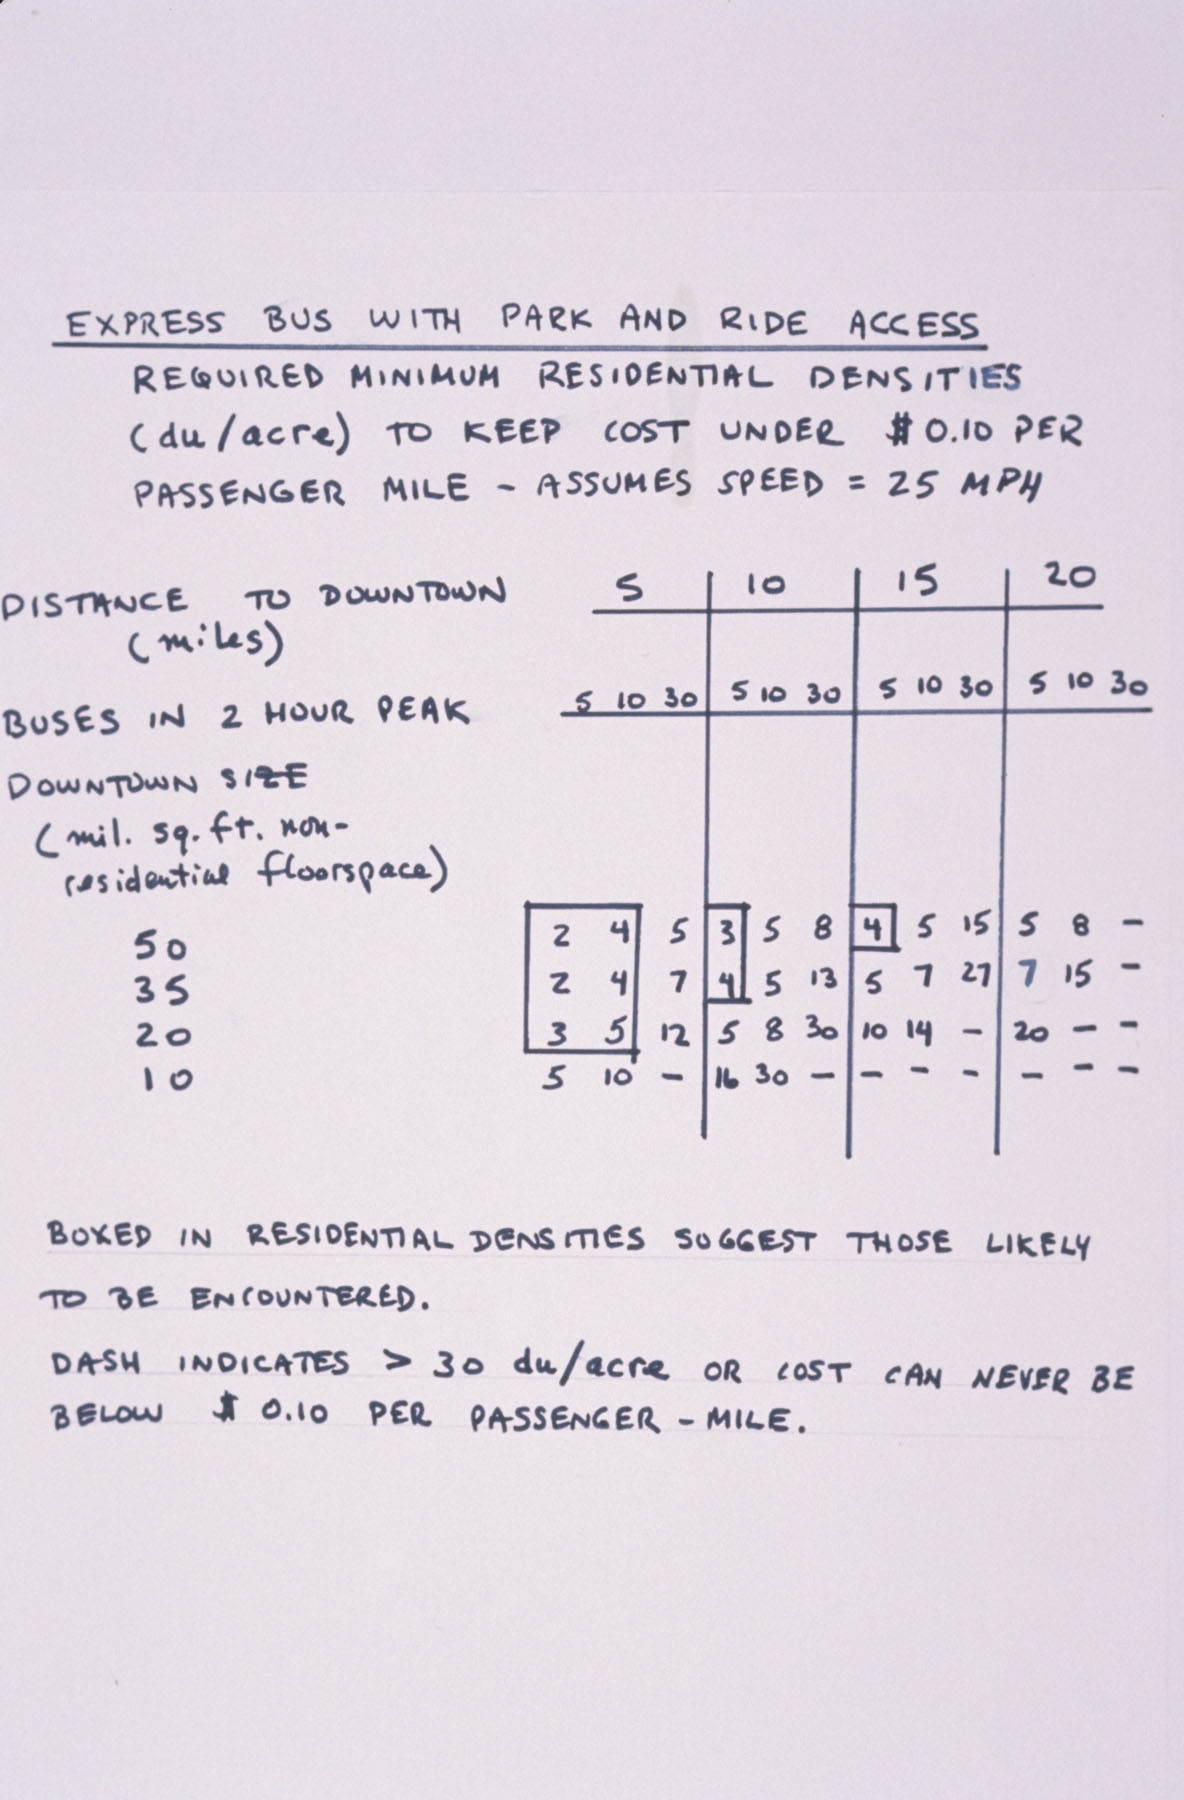 EXPRESS BUS WITH PARK AND RIDE ACCESS
REQUIRED MINIMUM RESIDENTIAL DENSITIES
(du/acre) TO KEEP COST UNDER $0.10 PER
PASSENGER MILE - ASSUMES SPEED = 25 MPH
DISTANCE TO DOWNTOWN 5 10 15 20
(miles)
BUSES IN 2 HOUR PEAK 5 10 30 5 10 30 5 10 30 5 10 30
DOWNTOWN SIZE
(mil. sq. ft. non-
residential floorspace)
50 2 4 5 3 5 8 4 5 15 5 8 -
35 2 4 7 4 5 13 5 7 27 7 15 -
20 3 5 12 5 8 30 10 14 - 20 - -
10 5 10 - 16 30 - - - - - - -
BOXED IN RESIDENTIAL DENSITIES SUGGEST THOSE LIKELY
TO BE ENCOUNTERED.
DASH INDICATES > 30 du/acre OR COST CAN NEVER BE
BELOW $ 0.10 PER PASSENGER - MILE.